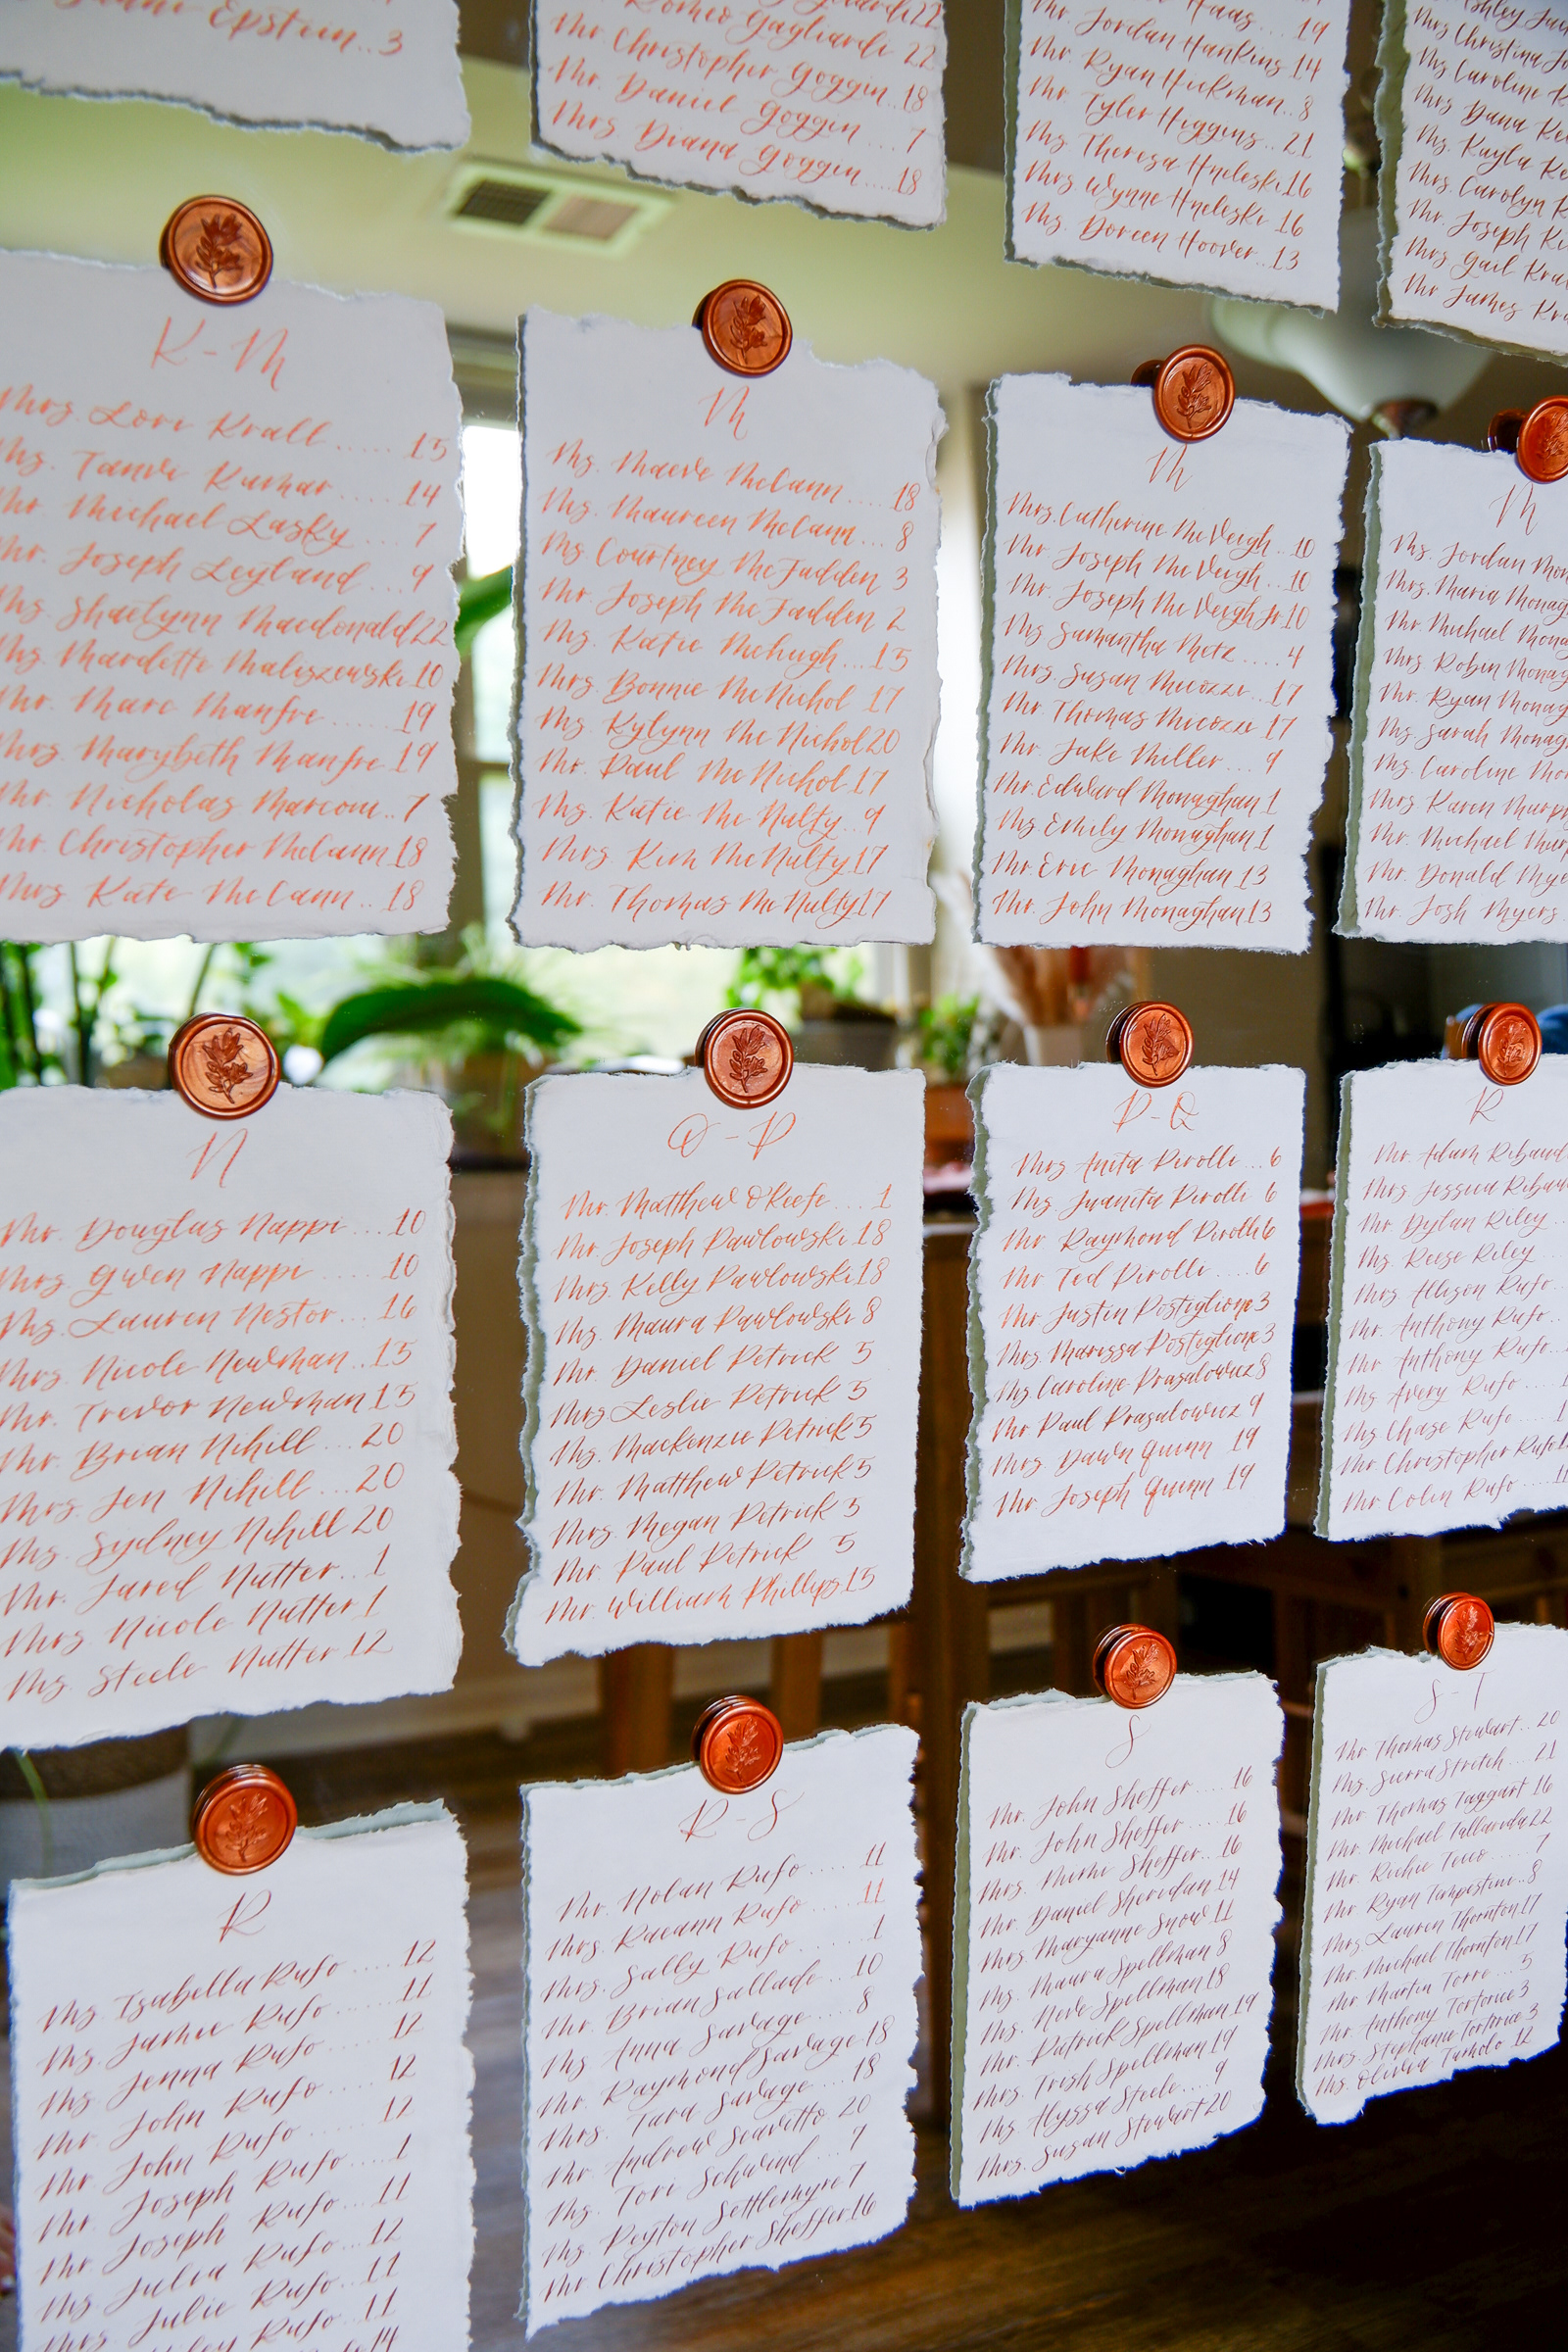 Epstein..3
Romeo Gagliardi 22
Mr. Christopher Goggin..18
Mr. Daniel Goggin....7
Mrs. Diana Goggin....18
Haas....19
Mr. Jordan Hankins 14
Mr. Ryan Hickman..8
Mr. Tyler Higgins..21
Ms. Theresa Hneleski 16
Mrs. Wynne Hneleski 16
Ms. Doreen Hoover..13
Mrs. Christina
Ms. Caroline
Mrs. Dana
Ms. Kayla
Mrs. Carolyn
Mr. Joseph
Mrs. Gail
Mr. James
K-M
Mrs. Lori Krall......15
Ms. Tanvi Kumar....14
Mr. Michael Lasky....7
Mr. Joseph Leyland...9
Ms. Shaelynn Macdonald 22
Ms. Mardette Maliszewski 10
Mr. Marc Manfre......19
Mrs. Marybeth Manfre 19
Mr. Nicholas Marconi..7
Mr. Christopher McCann 18
Mrs. Kate McCann..18
M
Ms. Maeve McCann....18
Ms. Maureen McCann...8
Ms. Courtney McFadden 3
Mr. Joseph McFadden 2
Ms. Katie McHugh...15
Mrs. Bonnie McNichol 17
Ms. Kylynn McNichol 20
Mr. Paul McNichol 17
Ms. Katie McNulty..9
Mrs. Kim McNulty 17
Mr. Thomas McNulty 17
M
Mrs. Catherine McVeigh..10
Mr. Joseph McVeigh...10
Mr. Joseph McVeigh Jr. 10
Ms. Samantha Metz.....4
Mrs. Susan Micozzi..17
Mr. Thomas Micozzi 17
Mr. Jake Miller....9
Mr. Edward Monaghan 1
Ms. Emily Monaghan 1
Mr. Eric Monaghan 13
Mr. John Monaghan 13
M
Ms. Jordan
Mrs. Maria
Mr. Michael
Mrs. Robin
Mr. Ryan
Ms. Sarah
Ms. Caroline
Mrs. Karen
Mr. Michael
Mr. Donald
Mr. Josh Myers
N
Mr. Douglas Nappi...10
Mrs. Gwen Nappi.....10
Ms. Lauren Nestor...16
Mrs. Nicole Newman..15
Mr. Trevor Newman 15
Mr. Brian Nihill...20
Mrs. Jen Nihill...20
Ms. Sydney Nihill 20
Mr. Jared Nutter..1
Mrs. Nicole Nutter 1
Ms. Steele Nutter 12
O-P
Mr. Matthew O'Keefe...1
Mr. Joseph Pawlowski 18
Mrs. Kelly Pawlowski 18
Ms. Maura Pawlowski 8
Mr. Daniel Petrick 5
Mrs. Leslie Petrick 5
Ms. Mackenzie Petrick 5
Mr. Matthew Petrick 5
Mrs. Megan Petrick 5
Mr. Paul Petrick 5
Mr. William Phillips 15
P-Q
Mrs. Anita Pirolli...6
Ms. Juanita Pirolli 6
Mr. Raymond Pirolli 6
Mr. Ted Pirolli.....6
Mr. Justin Postiglione 3
Mrs. Marissa Postiglione 3
Ms. Caroline Prazalowicz 8
Mr. Paul Prazalowicz 9
Mrs. Dawn Quinn 19
Mr. Joseph Quinn 19
R
Mr. Adam
Mrs. Jessica
Mr. Dylan Riley
Ms. Reese Riley
Mrs. Allison Rufo
Mr. Anthony Rufo
Mr. Anthony Rufo
Ms. Avery Rufo
Ms. Chase Rufo
Mr. Christopher Rufo
Mr. Colin Rufo
R
Ms. Isabella Rufo....12
Ms. Jamie Rufo.....11
Ms. Jenna Rufo....12
Mr. John Rufo....12
Mr. John Rufo....12
Mr. Joseph Rufo...1
Mr. Joseph Rufo...11
Ms. Julia Rufo...12
Mrs. Julie Rufo..11
Rufo..11
14
R-S
Mr. Nolan Rufo.....11
Mrs. Raeann Rufo....11
Mrs. Sally Rufo.....1
Mr. Brian Sallade...10
Ms. Anna Savage....8
Mr. Raymond Savage 18
Mrs. Tara Savage...18
Mr. Andrew Scavitto 20
Ms. Tori Schwind...9
Ms. Peyton Settlemyre 7
Mr. Christopher Sheffer 16
S
Mr. John Sheffer.....16
Mr. John Sheffer....16
Mrs. Mimi Sheffer..16
Mr. Daniel Sheridan 14
Mrs. Maryanne Snow 11
Ms. Maura Spellman 8
Ms. Neve Spellman 18
Mr. Patrick Spellman 19
Mrs. Trish Spellman 19
Ms. Alyssa Steele....9
Mrs. Susan Stewart 20
S-T
Mr. Thomas Stewart..20
Ms. Sierra Stretch...21
Mr. Thomas Taggart 16
Mr. Michael Tallarida 22
Mr. Richie Tecco......7
Mr. Ryan Tempestini..8
Mrs. Lauren Thornton 17
Mr. Michael Thornton 17
Mr. Martin Torre...5
Mr. Anthony Tortorice 3
Mrs. Stephanie Tortorice 3
Ms. Olivia Tumolo 12